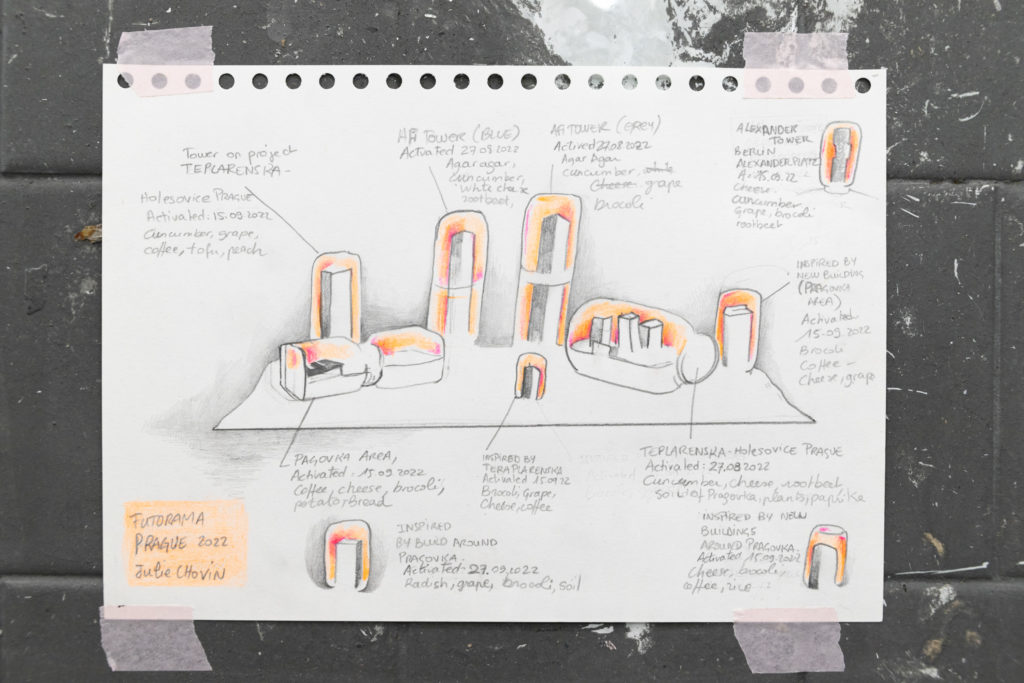 Tower on project
TEPLARENSKA-
HOLESOVICE PRAGUE
Activated: 15.09.2022
Cuncumber, grape,
coffee, tofu, peach
TOWER (BLUE)
Activated 27.08.2022
Agar agar,
cuncumber,
white cheese
rootbeet,
TOWER (GREY)
Actived 27.08.2022
Agar Agar
cuncumber, white
Cheese. grape
brocoli
ALEXANDER
TOWER
BERLIN
ALEXANDERPLATZ
A: 15.09.22
Cheese.
cuncumber
Grape, brocoli
rootbeet
INSPIRED BY
NEW BUILDING
(PRAGOVKA
AREA)
Activated
15-09.2022
Brocoli
Coffee -
Cheese, grape
PAGOVKA AREA,
Activated: 15.09.2022
Coffee, cheese, brocoli,
potato, Bread
INSPIRED BY
TERAPLARENSKA
Activated 15.09.22
Brocoli, Grape,
Cheese, coffee
TEPLARENSKA-Holesovice PRAGUE
Activated: 27.08.2022
Cuncumber, cheese, rootbeet
soil of Pragovka, plants, paprika
FUTORAMA
PRAGUE 2022
Julie CHOVIN
INSPIRED
BY BUILD AROUND
PRAGOVKA.
Activated 27.09.2022
Radish, grape, brocoli, soil
INSPIRED BY NEW
BUILDINGS
AROUND PRAGOVKA.
Activated 15.09.2022
Cheese, brocoli,
coffee, rice